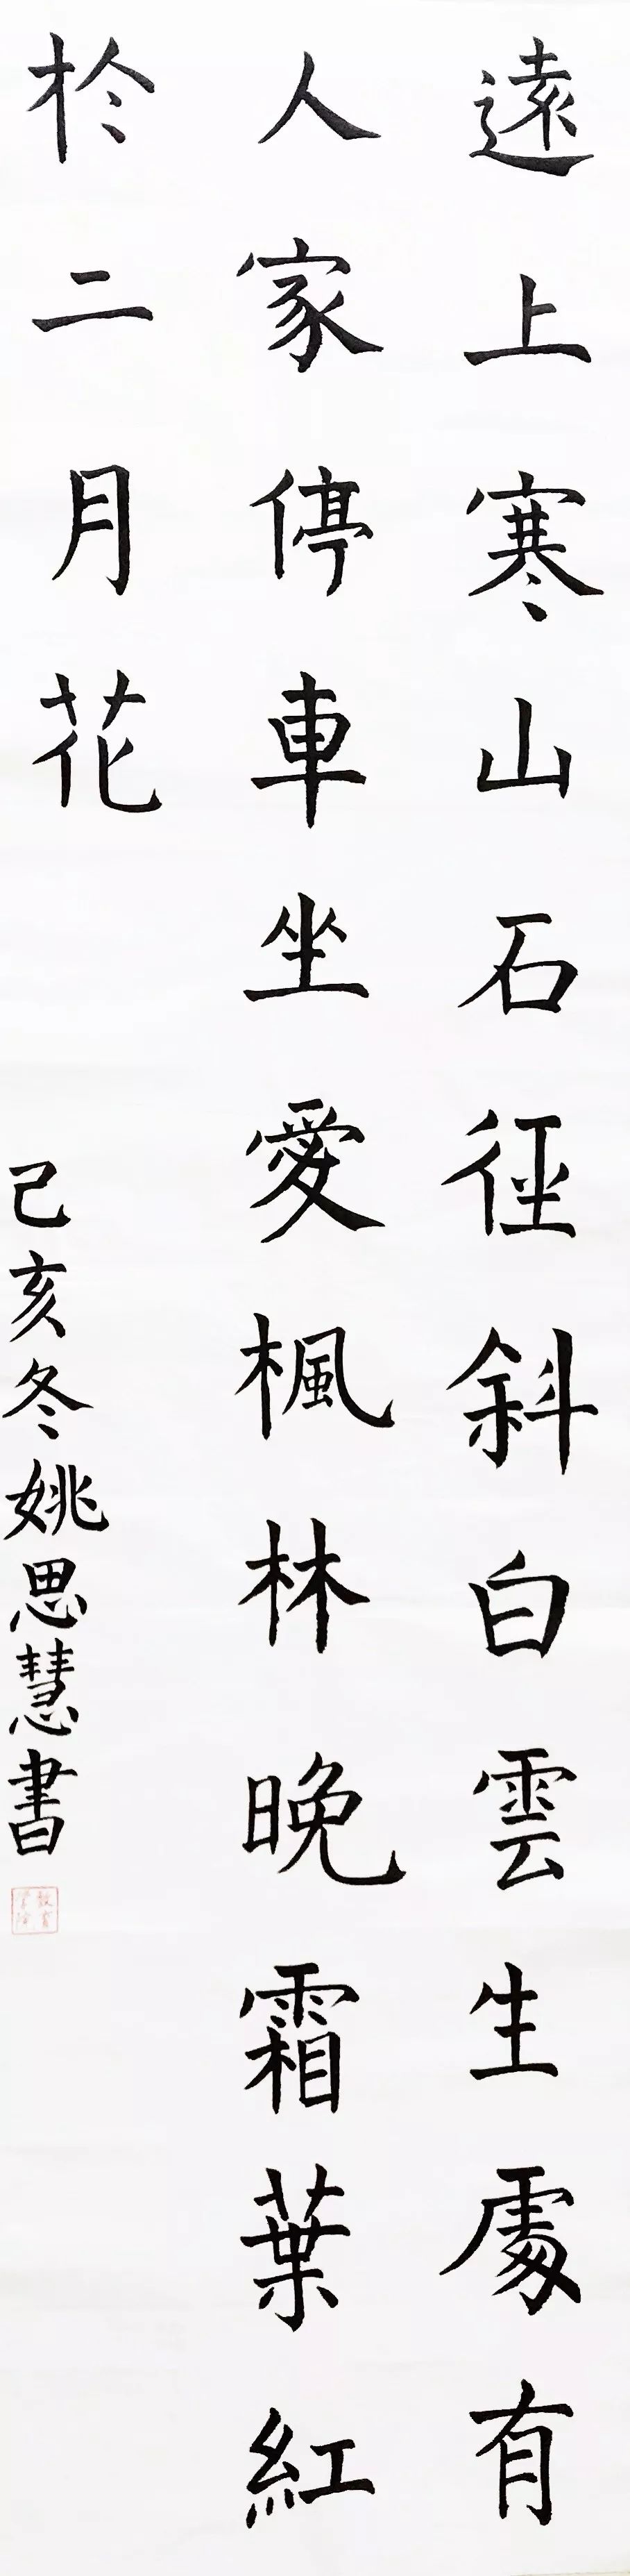 遠上寒山石徑斜白雲生處有
人家停車坐愛楓林晚霜葉紅
於二月花
己亥冬姚思慧書